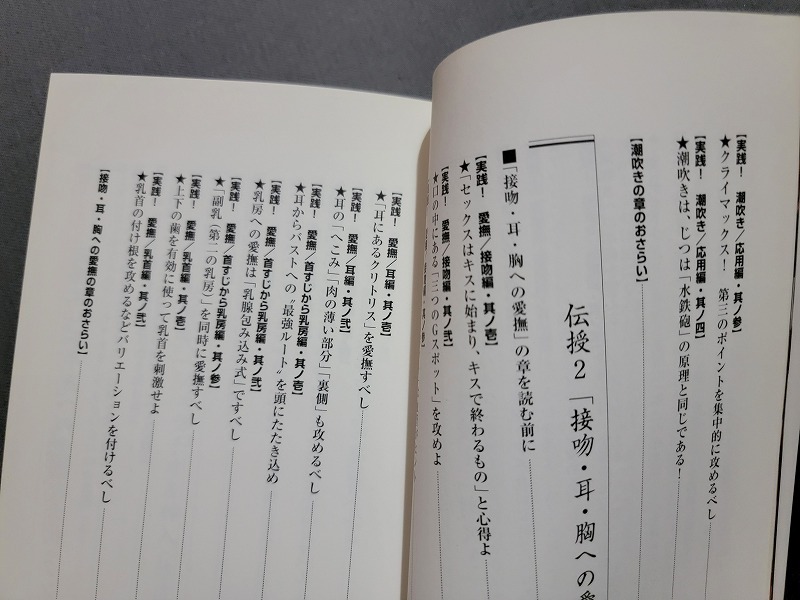 【実践！　潮吹き／応用編・其ノ参】
★クライマックス！　第三のポイントを集中的に攻めるべし
【実践！　潮吹き／応用編・其ノ四】
★潮吹きは、じつは「水鉄砲」の原理と同じである！
【潮吹きの章のおさらい】
伝授2　「接吻・耳・胸への愛
■「接吻・耳・胸への愛撫」の章を読む前に
【実践！　愛撫／接吻編・其ノ壱】
★「セックスはキスに始まり、キスで終わるもの」と心得よ
【実践！　愛撫／接吻編・其ノ弐】
★口の中にある「三つのGスポット」を攻めよ
【実践！　愛撫／耳編・其ノ壱】
★「耳にあるクリトリス」を愛撫すべし
【実践！　愛撫／耳編・其ノ弐】
★耳の「へこみ」「肉の薄い部分」「裏側」も攻めるべし
【実践！　愛撫／首すじから乳房編・其ノ壱】
★耳からバストへの“最強ルート”を頭にたたき込め
【実践！　愛撫／首すじから乳房編・其ノ弐】
乳房への愛撫は「乳腺包み込み式」ですべし
【実践！　愛撫／首すじから乳房編・其ノ参】
★「副乳（第二の乳房）」を同時に愛撫すべし
【実践！　愛撫／乳首編・其ノ壱】
★上下の歯を有効に使って乳首を刺激せよ
【実践！　愛撫／乳首編・其ノ弐】
★乳首の付け根を攻めるなどバリエーションを付けるべし
【接吻・耳・胸への愛撫の章のおさらい】